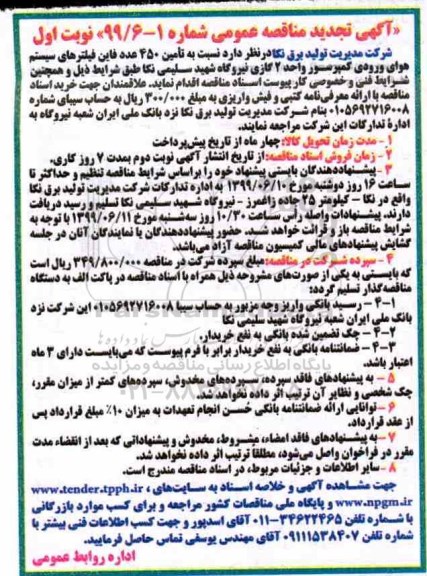 «آگهی تجدید مناقصه عمومی شماره ۱-۹۹/۶» نوبت اول
شرکت مدیریت تولید برق نکا درنظر دارد نسبت به تأمین ۴۵۰ عدد فاین فیلترهای سیستم
هوای ورودی کمپرسور واحد ۲ گازی نیروگاه شهید سلیمی نکا طبق شرایط ذیل و همچنین
شرایط فنی و خصوصی کار پیوست اسناد مناقصه اقدام نماید. علاقمندان جهت خرید اسناد
مناقصه با ارائه معرفی‌نامه کتبی و فیش واریزی به مبلغ ۳۰۰/۰۰۰ ریال به حساب سیبای شماره
۰۱۰۵۶۹۲۷۱۶۰۰۸ بنام شرکت مدیریت تولید برق نکا نزد بانک ملی ایران شعبه نیروگاه به
اداره تدارکات این شرکت مراجعه نمایند.
۱ - مدت زمان تحویل کالا: چهار ماه از تاریخ پیش‌پرداخت
۲ - زمان فروش اسناد مناقصه: از تاریخ انتشار آگهی نوبت دوم بمدت ۷ روز کاری.
۳ - پیشنهاددهندگان بایستی پیشنهاد خود را براساس شرایط مناقصه تنظیم و حداکثر تا
ساعت ۱۶ روز دوشنبه مورخ ۱۳۹۹/۰۶/۱۰ به اداره تدارکات شرکت مدیریت تولید برق نکا
واقع در نکا - کیلومتر ۲۵ جاده زاغمرز - نیروگاه شهید سلیمی نکا تسلیم و رسید دریافت
دارند. پیشنهادات واصله راس ساعت ۱۰/۳۰ روز سه‌شنبه مورخ ۱۳۹۹/۰۶/۱۱ با توجه به
شرایط مناقصه باز و قرائت خواهد شد. حضور پیشنهاددهندگان یا نمایندگان آنان در جلسه
گشایش پیشنهادهای مالی کمیسیون مناقصه آزاد می‌باشد.
۴ - سپرده شرکت در مناقصه: مبلغ سپرده شرکت در مناقصه ۳۴۹/۸۰۰/۰۰۰ ریال است
که بایستی به یکی از صورت‌های مشروحه ذیل همراه با اسناد مناقصه در پاکت الف به دستگاه
مناقصه‌گذار تسلیم گردد:
۴-۱ - رسید بانکی واریز وجه مزبور به حساب سیبا ۰۱۰۵۶۹۲۷۱۶۰۰۸ این شرکت نزد
بانک ملی ایران شعبه نیروگاه شهید سلیمی نکا
۴-۲ - چک تضمین شده بانکی به نفع خریدار.
۴-۳ - ضمانتنامه بانکی به نفع خریدار برابر با فرم پیوست که می‌بایست دارای ۳ ماه
اعتبار باشد.
۵ - به پیشنهادهای فاقد سپرده، سپرده‌های مخدوش، سپرده‌های کمتر از میزان مقرر،
چک شخصی و نظایر آن ترتیب اثر داده نخواهد شد.
۶ - توانایی ارائه ضمانتنامه بانکی حُسن انجام تعهدات به میزان ۱۰٪ مبلغ قرارداد پس
از عقد قرارداد.
۷ - به پیشنهادهای فاقد امضاء، مشروط، مخدوش و پیشنهاداتی که بعد از انقضاء مدت
مقرر در فراخوان واصل می‌شود، مطلقاً ترتیب اثر داده نخواهد شد.
۸ - سایر اطلاعات و جزئیات مربوط، در اسناد مناقصه مندرج است.
جهت مشاهده آگهی و خلاصه اسناد به سایت‌های www.tender.tpph.ir ،
www.npgm.ir و پایگاه ملی مناقصات کشور مراجعه و برای کسب موارد بازرگانی
با شماره تلفن ۳۴۶۲۲۴۶۵-۰۱۱ آقای اسدپور و جهت کسب اطلاعات فنی بیشتر با
شماره تلفن ۰۹۱۱۱۵۳۸۴۰۷ آقای مهندس یوسفی تماس حاصل فرمایید.
اداره روابط عمومی